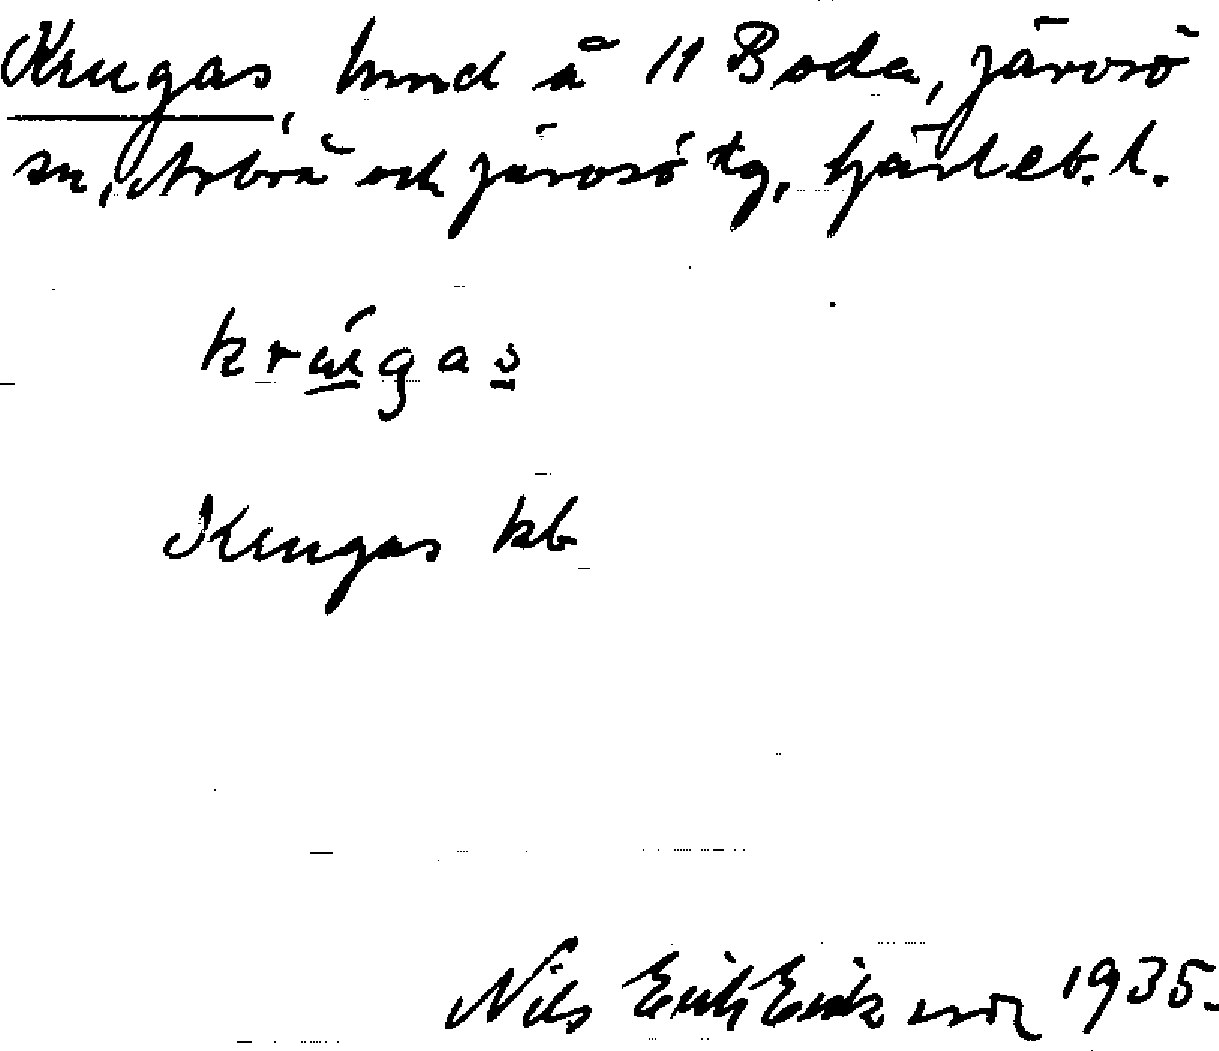 Krugas, hmd å 11 Boda, Järvsö
sn, Arbrå och Järvsö tg, Gävleb. l.
krúgas
Krugas kb
Nils Erik Eriksson 1935.